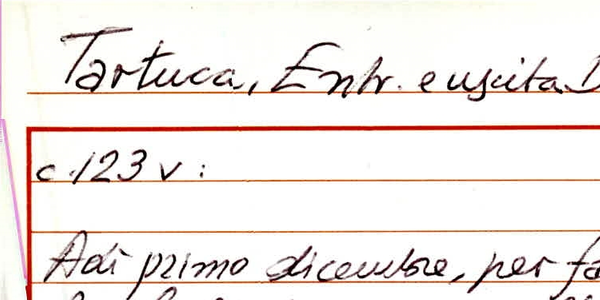 Tartuca, Entr. e uscita
c. 123 v:
Adì primo dicembre, per